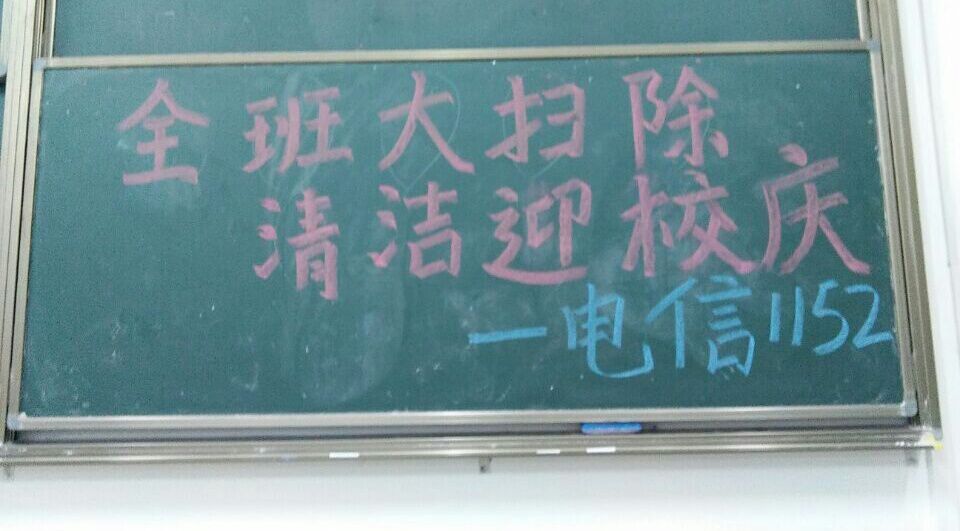 全班大扫除
清洁迎校庆
一电信1152